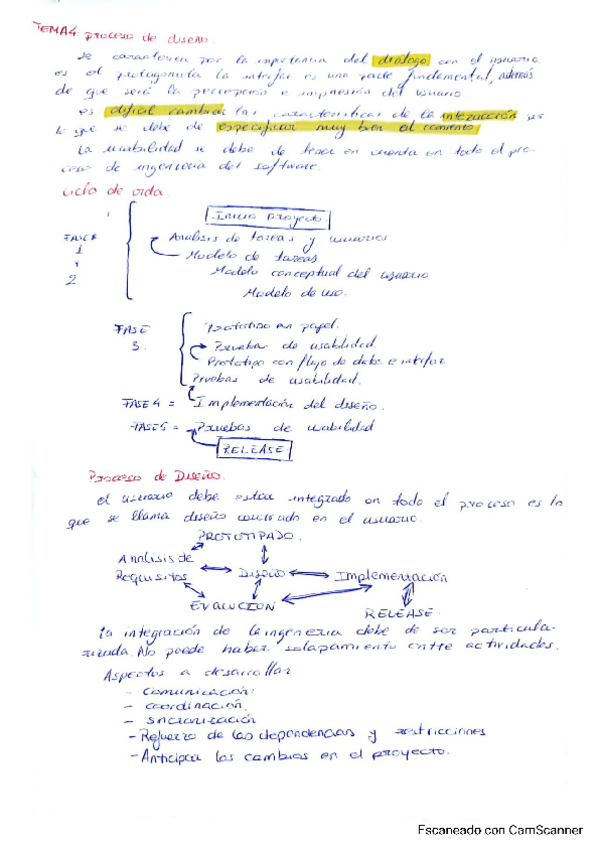 TEMA4 proceso de diseño.
se caracteriza por la importancia del dialogo con el usuario
es el protagonista la interfaz es una parte fundamental, además
de que será la percepción e impresión del usuario
es dificil cambiar las características de la interacción por
lo que se debe de especificar muy bien al comienzo
La usabilidad se debe de tener en cuenta en todo el pro-
ceso de ingenieria del software.
ciclo de vida
Inicio Proyecto
FASES
1
y
2
Analisis de tareas y usuarios
Modelo de tareas
Modelo conceptual del usuario
Modelo de uso.
FASE
3.
Prototipo en papel.
Pruebas de usabilidad
Prototipo con flujo de datos e interfaz
Pruebas de usabilidad.
FASE4 = Implementación del diseño.
FASE5 = Pruebas de usabilidad
RELEASE
Proceso de Diseño.
el usuario debe estar integrado en todo el proceso es lo
que se llama diseño centrado en el usuario.
PROTOTIPADO.
Analisis de
Requisitos
Diseño
Implementación
EVALUCION
RELEASE.
la integración de la ingeneria debe de ser particula-
rizada. No puede haber solapamiento entre actividades.
Aspectos a desarrollar
- comunicación.
- coordinación.
- sincronización
- Refuerzo de las dependencias y restricciones
- Anticipar los cambios en el proyecto.
Escaneado con CamScanner